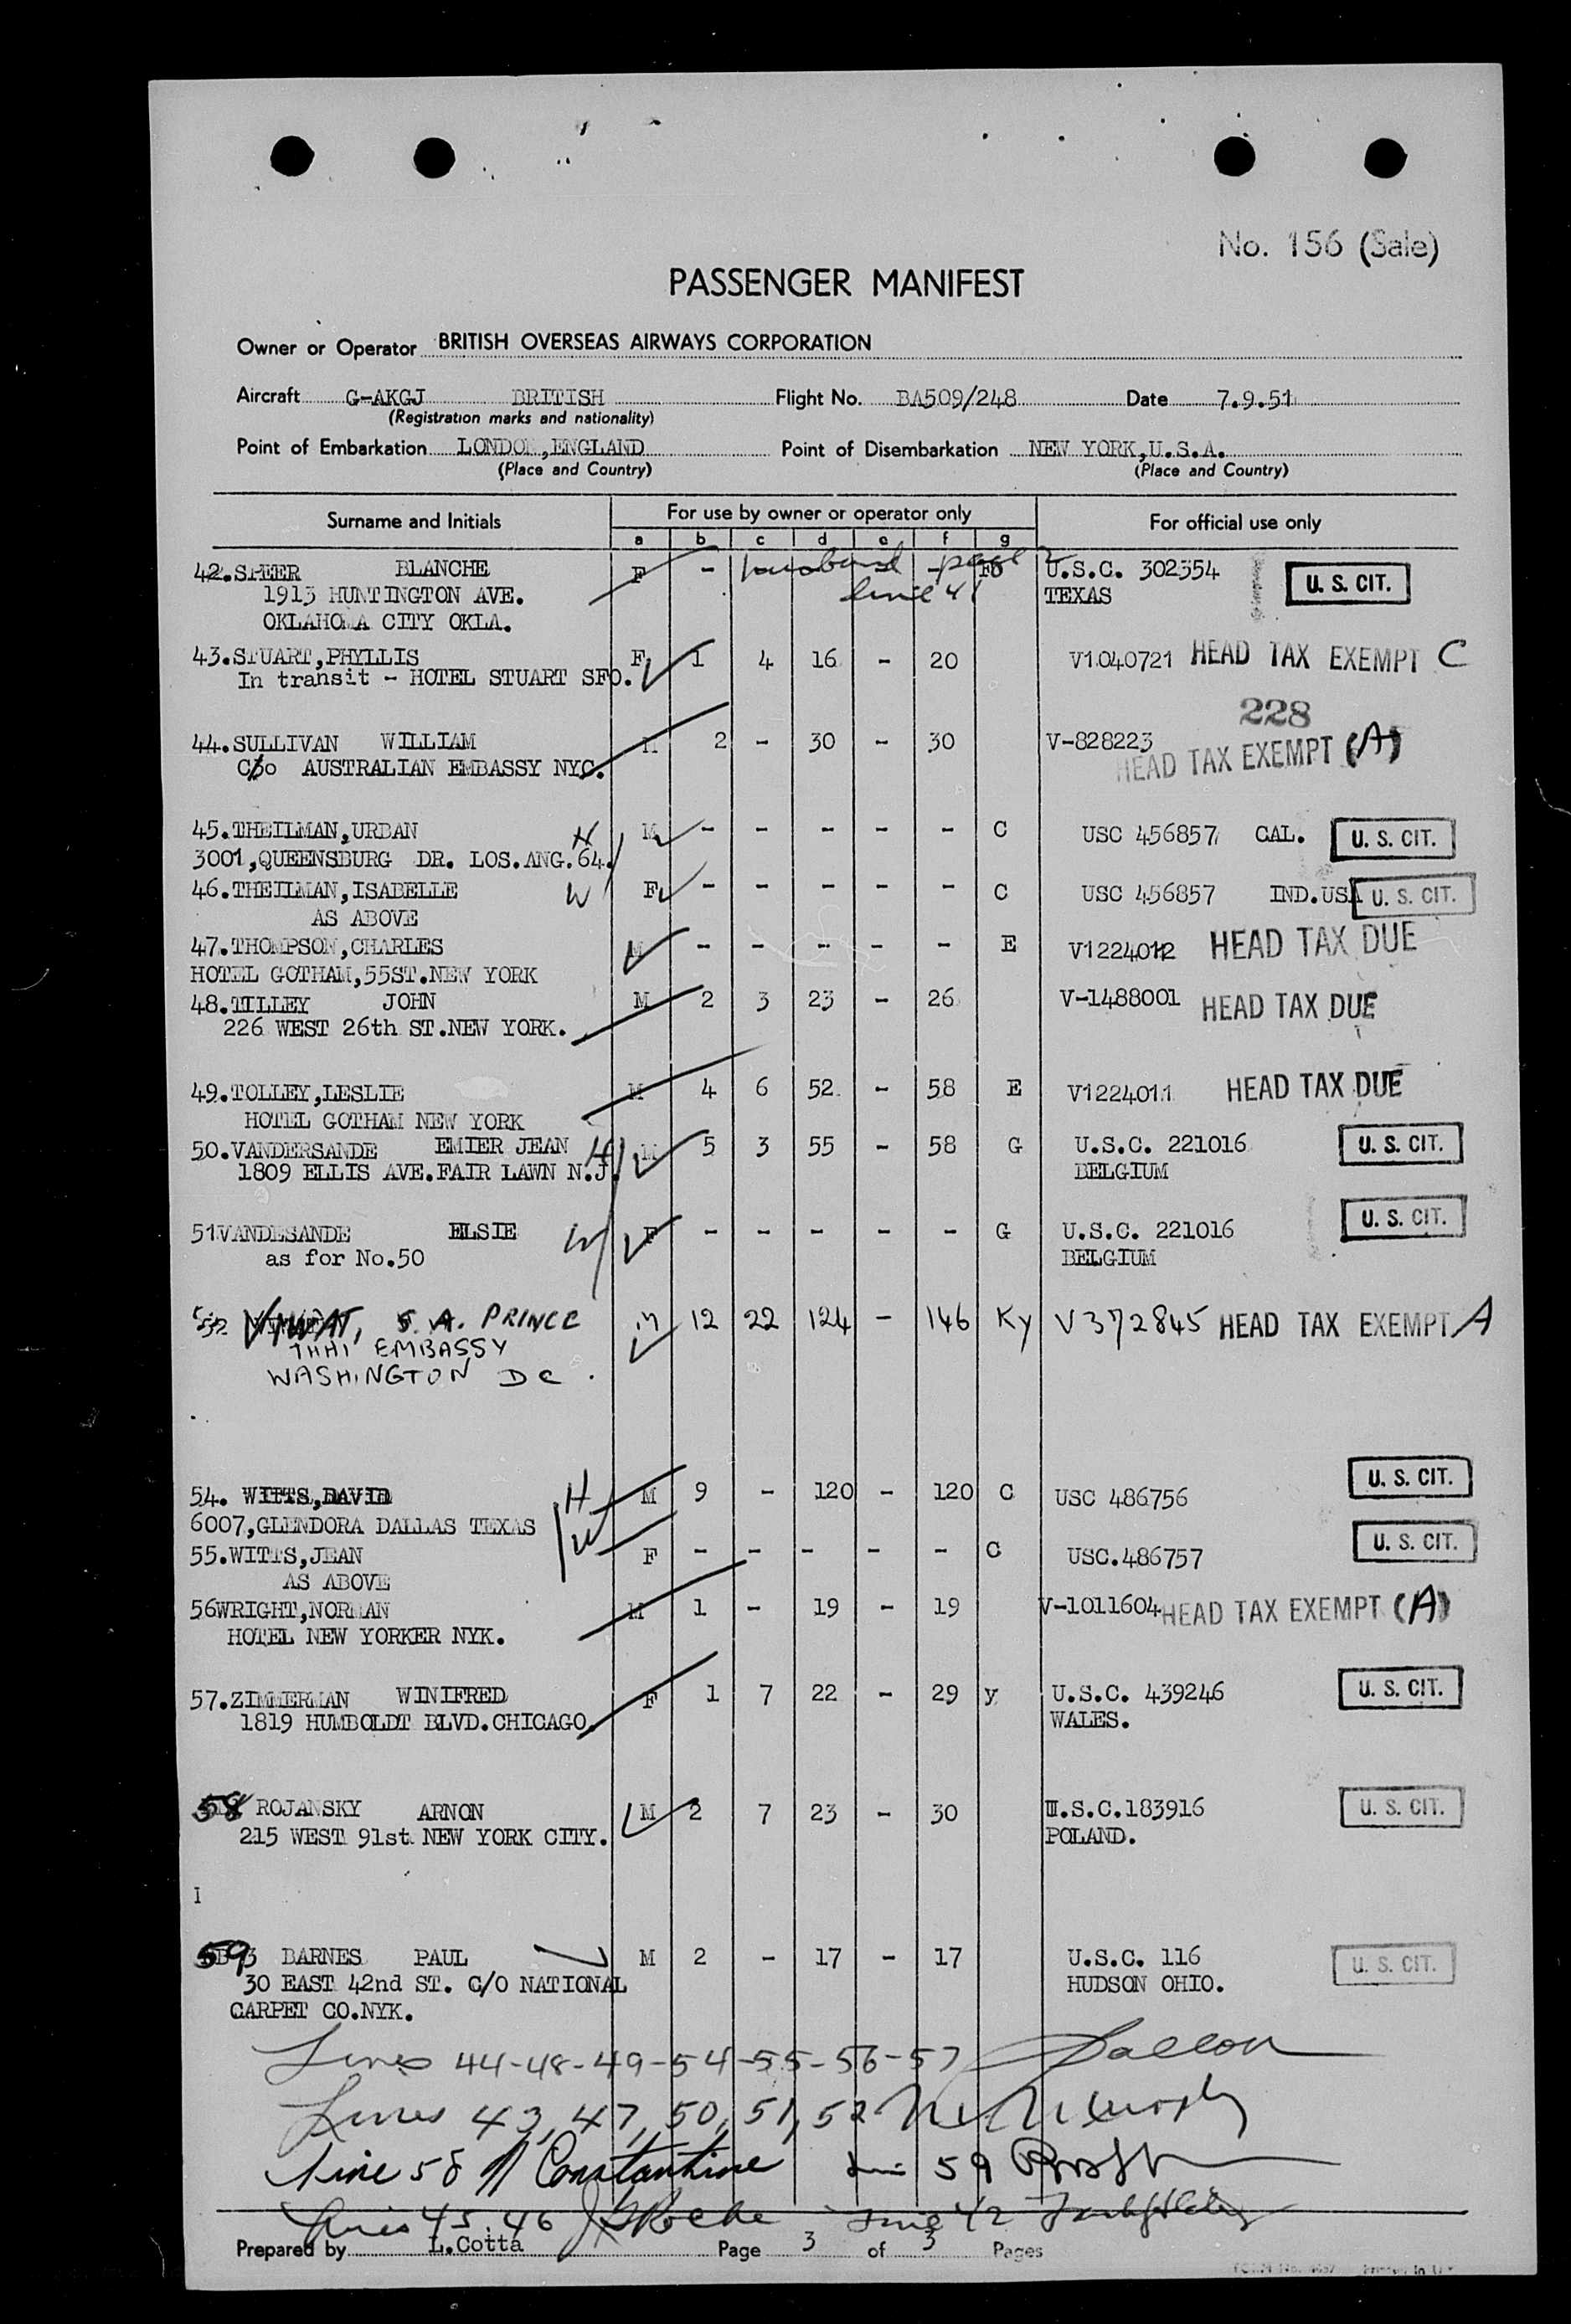 No. 156 (Sale)
PASSENGER MANIFEST
Owner or Operator BRITISH OVERSEAS AIRWAYS CORPORATION
Aircraft G-AKGJ BRITISH Flight No. BA509/248 Date 7.9.51
(Registration marks and nationality)
Point of Embarkation LONDON,ENGLAND Point of Disembarkation NEW YORK,U.S.A.
(Place and Country) (Place and Country)
Surname and Initials For use by owner or operator only For official use only
a b c d e f g
42.SPEER BLANCHE F - husband - page 2 U.S.C. 302354 U. S. CIT.
1913 HUNTINGTON AVE. line 41 TEXAS
OKLAHOMA CITY OKLA.
43.STUART,PHYLLIS F 1 4 16 - 20 V1040721 HEAD TAX EXEMPT C
In transit - HOTEL STUART SFO.
228
44.SULLIVAN WILLIAM M 2 - 30 - 30 V-828223
C/o AUSTRALIAN EMBASSY NYC. HEAD TAX EXEMPT (A)
45.THEILMAN,URBAN H M - - - - - C USC 456857 CAL. U. S. CIT.
3001,QUEENSBURG DR. LOS.ANG.64.
46.THEILMAN,ISABELLE W F - - - - - C USC 456857 IND.USA U. S. CIT.
AS ABOVE
47.THOMPSON,CHARLES M - - - - - E V1224012 HEAD TAX DUE
HOTEL GOTHAM,55ST.NEW YORK
48.TILLEY JOHN M 2 3 23 - 26 V-1488001 HEAD TAX DUE
226 WEST 26th ST.NEW YORK.
49.TOLLEY,LESLIE M 4 6 52 - 58 E V1224011 HEAD TAX DUE
HOTEL GOTHAM NEW YORK
50.VANDERSANDE EMIER JEAN H M 5 3 55 - 58 G U.S.C. 221016 U. S. CIT.
1809 ELLIS AVE.FAIR LAWN N.J. BELGIUM
51VANDESANDE ELSIE W F - - - - - G U.S.C. 221016 U. S. CIT.
as for No.50 BELGIUM
52 VIWAT, S. A. PRINCE M 12 22 124 - 146 Ky V372845 HEAD TAX EXEMPT A
THAI EMBASSY
WASHINGTON DC.
54. WITTS,DAVID H M 9 - 120 - 120 C USC 486756 U. S. CIT.
6007,GLENDORA DALLAS TEXAS W
55.WITTS,JEAN F - - - - - C USC.486757 U. S. CIT.
AS ABOVE
56WRIGHT,NORMAN M 1 - 19 - 19 V-1011604 HEAD TAX EXEMPT (A)
HOTEL NEW YORKER NYK.
57.ZIMMERMAN WINIFRED F 1 7 22 - 29 y U.S.C. 439246 U. S. CIT.
1819 HUMBOLDT BLVD.CHICAGO. WALES.
58 ROJANSKY ARNON M 2 7 23 - 30 U.S.C.183916 U. S. CIT.
215 WEST 91st NEW YORK CITY. POLAND.
I
59 BARNES PAUL M 2 - 17 - 17 U.S.C. 116 U. S. CIT.
30 EAST 42nd ST. C/O NATIONAL HUDSON OHIO.
CARPET CO.NYK.
Lines 44-48-49-54-55-56-57
Lines 43, 47, 50, 51, 52 Murphy
Line 58 Constantine Line 59
Lines 45, 46 Roche Line 42
Prepared by L.Cotta Page 3 of 3 Pages